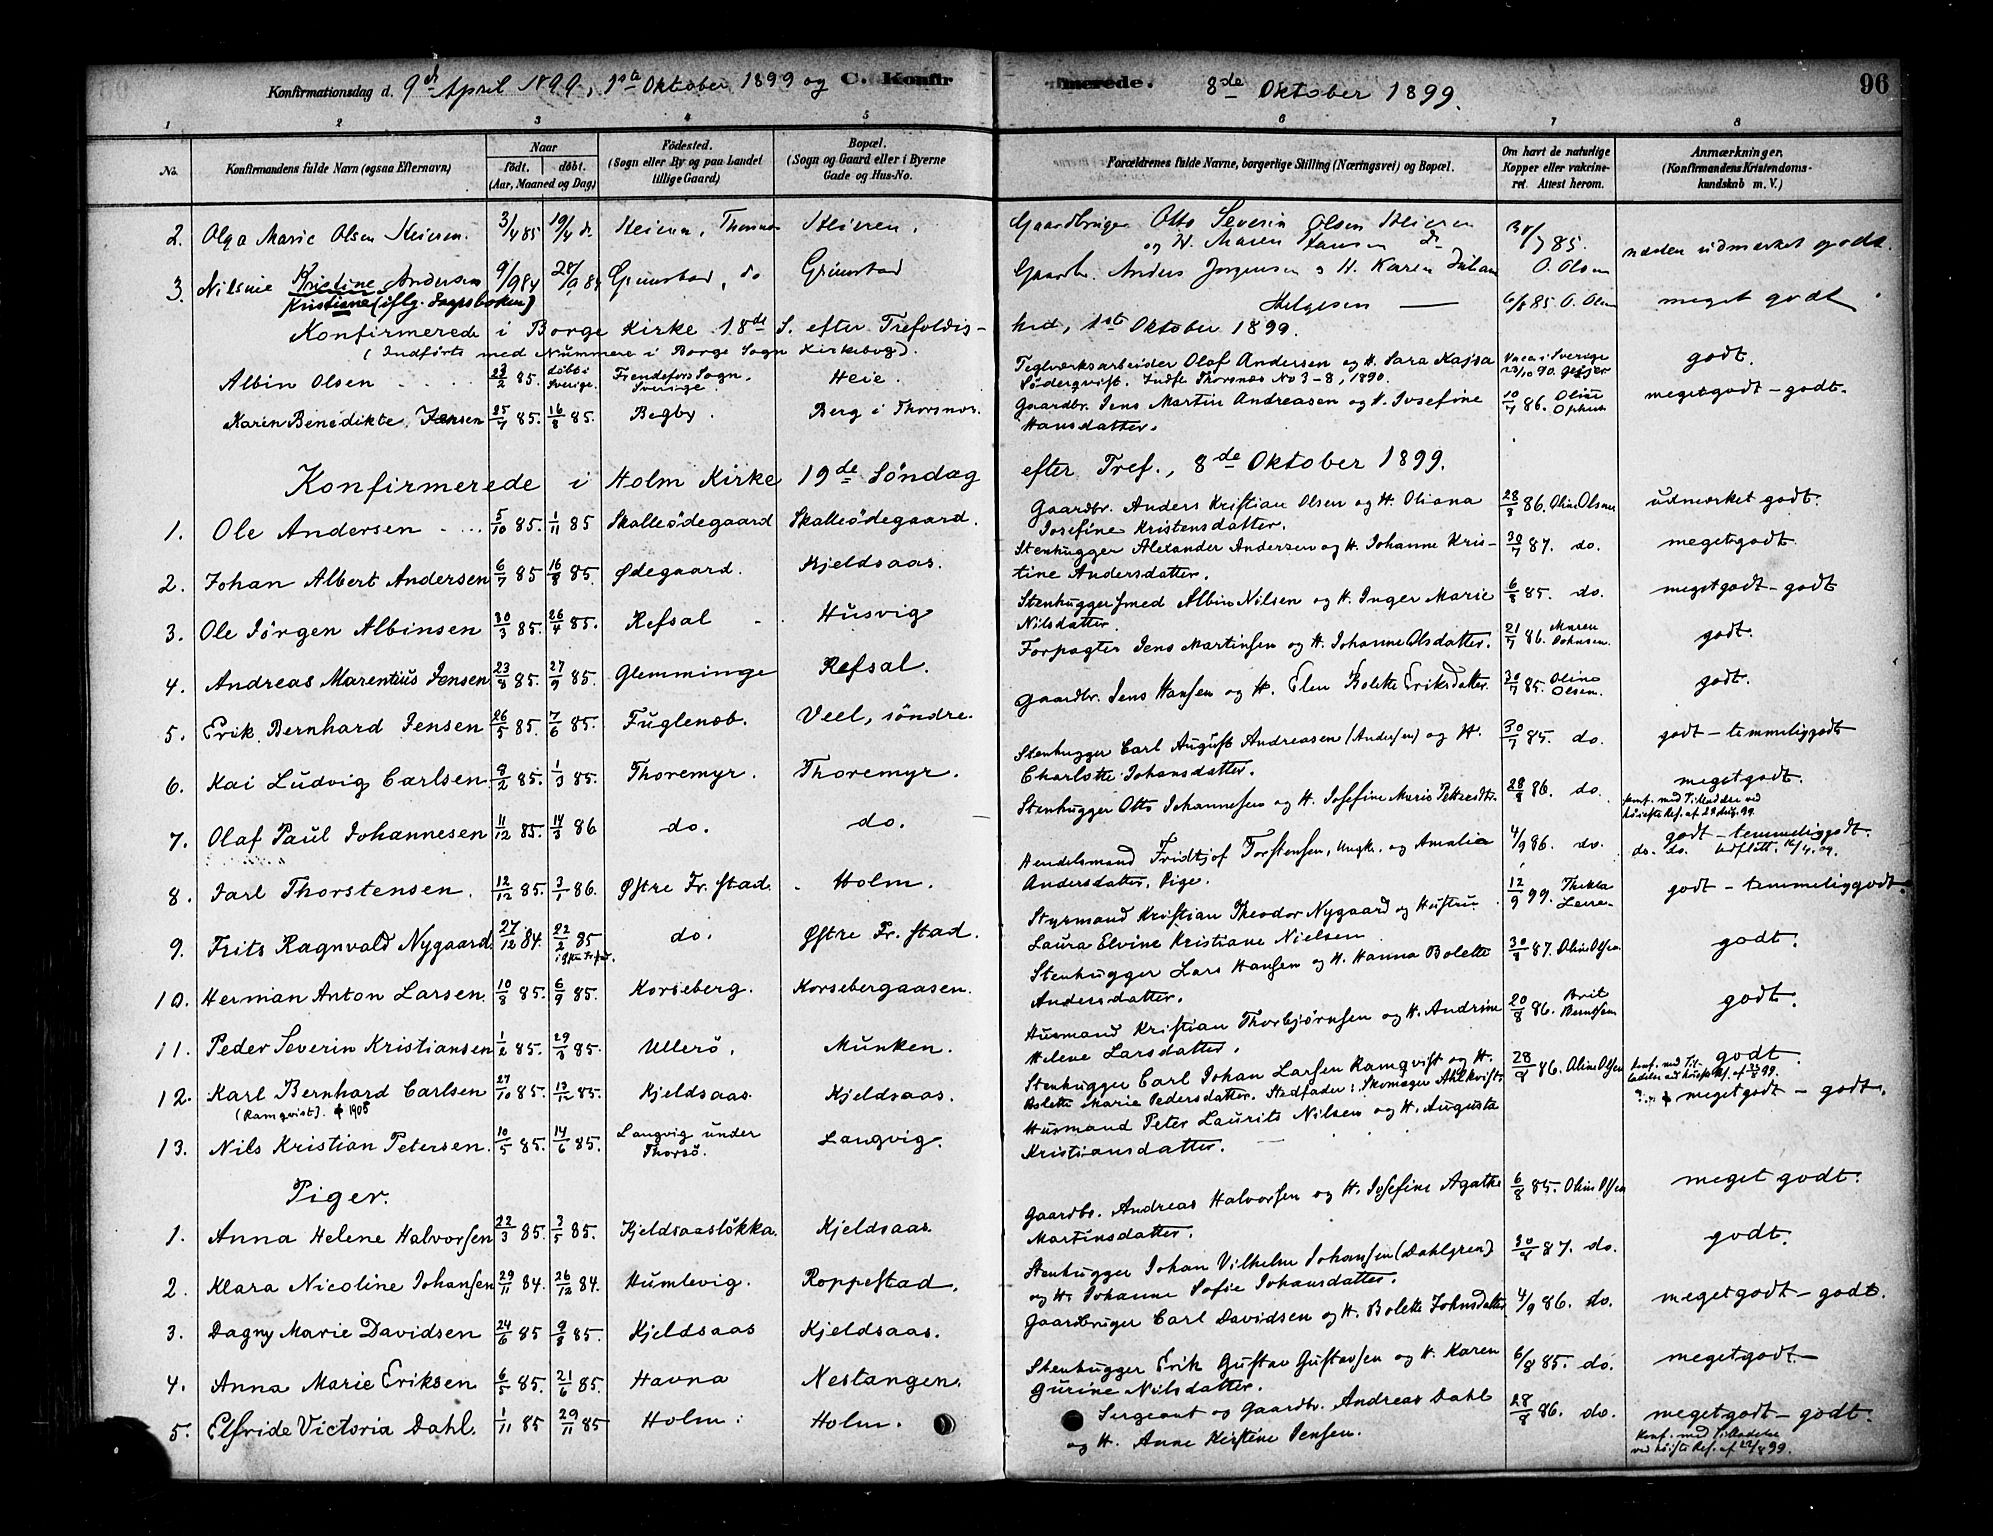 Konfirmationsdag d. 9de April 1899, 1ste Oktober 1899 og C. Konfirmerede. 8de Oktober 1899. 96
1 2 3 4 5 6 7 8
No. Konfirmandens fulde Navn (ogsaa Efternavn) Naar født. døbt. (Aar, Maaned og Dag) Fødested. (Sogn eller By og paa Landet tillige Gaard) Bopæl. (Sogn og Gaard eller i Byerne Gade og Hus-No. Forældrenes fulde Navne, borgerlige Stilling (Næringsvei) og Bopæl. Om havt de naturlige Kopper eller vakcineret. Attest herom. Anmærkninger. (Konfirmandens Kristendomskundskab m. V.)
2. Olga Marie Olsen Heieren. 3/4 85 19/4 Heieren, Thorsnæs Heieren. Gaardbruger Otto Severin Olsen Heieren 85. næsten udmærket godt.
og H. Maren Hansen
3. Nilsine Kristine Andersen 9/9 84 28/9 84 Grimstad, do Grimstad Gaardbr. Anders Jørgensen og H. Karen Juliane O. Olsen
Kristiane (iflg. Dagsboken) Helgesen 6/8 85 O. Olsen meget godt
Konfirmerede i Borge Kirke 18de S. efter Trefoldighed, 1ste Oktober 1899.
(Indførte med Nummere i Borge Sogn Kirkebog).
Albin Olsen 23/2 85. døbt i Sverige. Frendefors Sogn. Sverige. Heie. Teglværksarbeider Olaf Andersen og H. Sara Kajsa Vacc. i Sverige godt.
Söderqvist. Indfl. Thorsnæs No 3-8, 1890.
Karen Benedikte Jensen 25/7 85. 16/8 85. Begby. Berg i Thorsnæs. Gaardbr. Jens Martin Andreasen og H. Josefine 10/7 86. Oline megetgodt - godt.
Hansdatter.
Konfirmerede i Holm Kirke 19de Søndag efter Tref., 8de Oktober 1899.
1. Ole Andersen 5/10 85. 1/11 85 Skalleødegaard Skalleødegaard. Gaardbr. Anders Kristian Olsen og H. Oliana 28/8 86. Oline Olsen udmærket godt.
Josefine Kristensdatter.
2. Johan Albert Andersen 6/7 85 16/8 85. Ødegaard. Kjeldsaas. Stenhugger Alexander Andersen og H. Johanne Kris- 30/7 87. do. megetgodt.
tine Andersdatter.
3. Ole Jørgen Albinsen 30/3 85. 26/4 85. Refsal Husvig Stenhugger smed Albin Nilsen og H. Inger Marie 6/8 85. do. megetgodt - godt
Nilsdatter.
4. Andreas Marentius Jensen 23/8 85. 27/9 85. Glemminge Refsal. Forpagter Jens Martinsen og H. Johanne Olsdatter. 21/7 86. Maren Johnsen. godt.
5. Erik Bernhard Jensen 26/5 85. 7/6 85. Fuglenæb. Veel, søndre. Gaardbr. Jens Hansen og H. Elen Bolette Eriksdatter. 30/7 85. Oline Olsen. godt.
6. Kai Ludvig Carlsen 8/2 85. 1/3 85. Thoremyr. Thoremyr. Stenhugger Carl August Andreasen (Andersen) og H. 30/7 85. do. godt - temmeliggodt
Charlotte Johansdatter.
7. Olaf Paul Johannesen 11/12 85. 14/3 86 do. do. Stenhugger Otto Johannesen og H. Josefine Marie 28/8 86. do. megetgodt.
Konf. med Tilladelse ved høieste Ref. af 22 Aug. 99.
8. Jarl Thorstensen. 12/12 85. 3/1 86. Østre Fr.stad. Holm. Handelsmand Fridtjof Torstensen, Ungk. og Amalia 4/9 86. do. godt - temmeliggodt.
Andersdatter, Pige. do. do.
9. Frits Ragnvald Nygaard. 27/12 84. 22/2 85 do. Østre Fr.stad. Styrmand Kristian Theodor Nygaard og Hustru 12/9 99. Thekla godt - temmeliggodt.
Laura Elvine Kristiane Nielsen
10. Herman Anton Larsen. 10/8 85. 6/9 85. Korseberg. Korsebergaasen. Stenhugger Lars Hansen og H. Hanna Bolette 30/8 87. Oline Olsen godt.
Andersdatter.
11. Peder Severin Kristiansen 1/2 85. 29/3 85. Ullerø. Munken. Husmand Kristian Thorbjørnsen og H. Andrine 20/8 86. Brit Berntsen godt.
Helene Larsdatter.
12. Karl Bernhard Carlsen 27/10 85. 13/12 85. Kjeldsaas. Kjeldsaas. Stenhugger Carl Johan Larsen Ramqvist og H. 28/8 86. Oline Olsen godt.
(Ramqvist). 1905 Bolette Marie Pedersdatter. Stedfader: Skomager Ahlkvist.
13. Nils Kristian Petersen. 10/5 85. 14/6 85. Langvig under Thorsø. Langvig. Husmand Peter Laurits Nilsen og H. Augusta megetgodt - godt.
Kristiansdatter.
Piger.
1. Anna Helene Halvorsen 22/3 85. 3/5 85. Kjeldsaasløkka. Kjeldsaas. Gaardbr. Andreas Halvorsen og H. Josefine Agathe 6/8 85. Oline Olsen meget godt.
Martinsdatter.
2. Klara Nicoline Johansen 29/11 84. 26/12 84. Humlevig. Roppestad. Stenhugger Johan Vilhelm Johansen (Dahlgren) 30/8 87. do. godt.
og H. Johanne Sofie Johansdatter.
3. Dagny Marie Davidsen 24/6 85 9/8 85. Kjeldsaas Kjeldsaas. Gaardbruger Carl Davidsen og H. Bolette Johnsdatter 4/9 86. do. megetgodt - godt.
4. Anna Marie Eriksen 6/5 85. 21/6 85. Havna Nestangen. Stenhugger Erik Gustav Gustavsen og H. Karen 6/8 85. do. megetgodt.
Gurine Nilsdatter.
5. Elfride Victoria Dahl. 1/11 85 29/11 85 Holm. Holm. Sergeant og Gaardbr. Andreas Dahl 28/8 86. do. megetgodt - godt.
og H. Anne Kirstine Jensen. Konf. med Tilladelse ved høieste Ref. af 22/8 99.